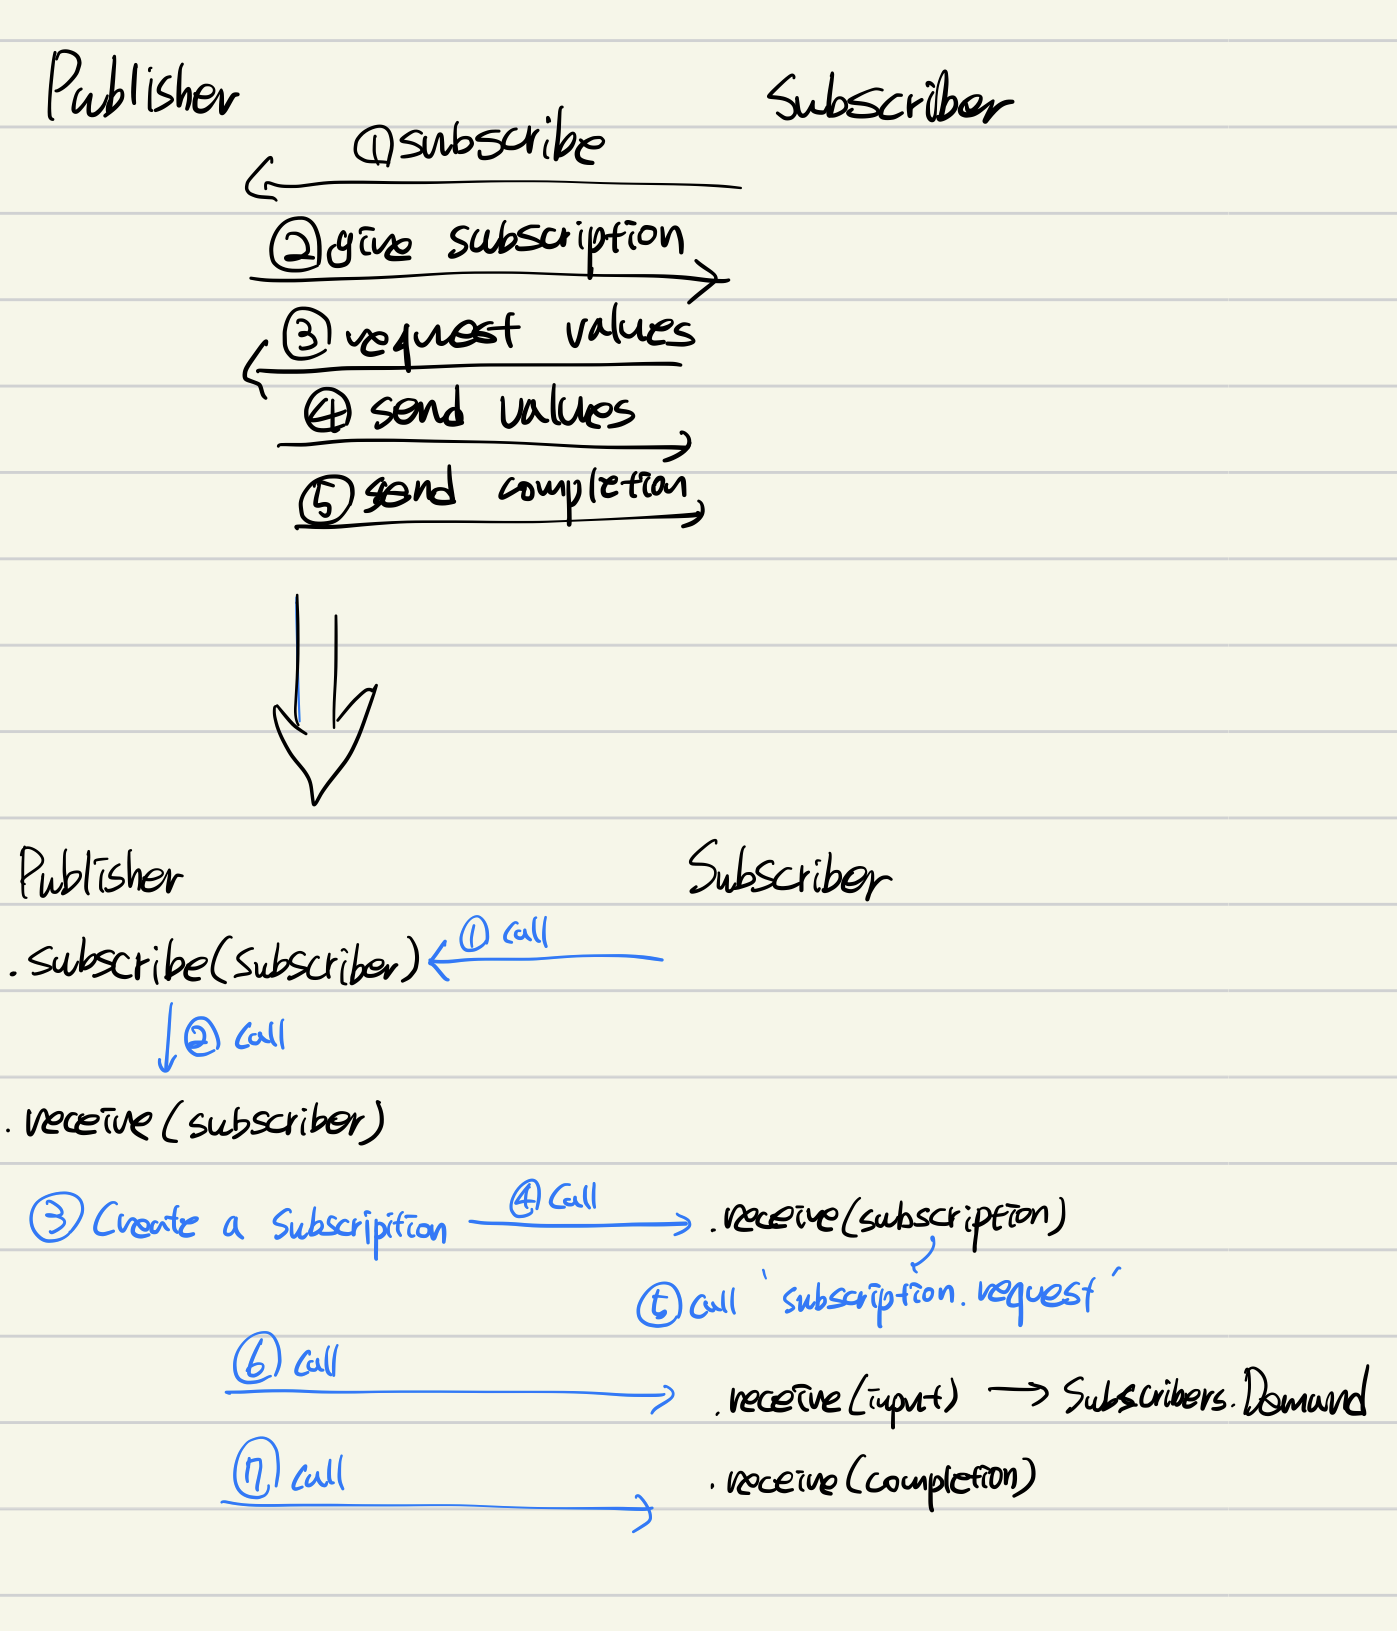 Publisher Subscriber
① subscribe
② give subscription
③ request values
④ send values
⑤ send completion
Publisher Subscriber
.subscribe(subscriber) ① call
② call
.receive(subscriber)
③ Create a Subscripition ④ call .receive(subscription)
⑤ call 'subscription.request'
⑥ call .receive(input) → Subscribers.Demand
⑦ call .receive(completion)